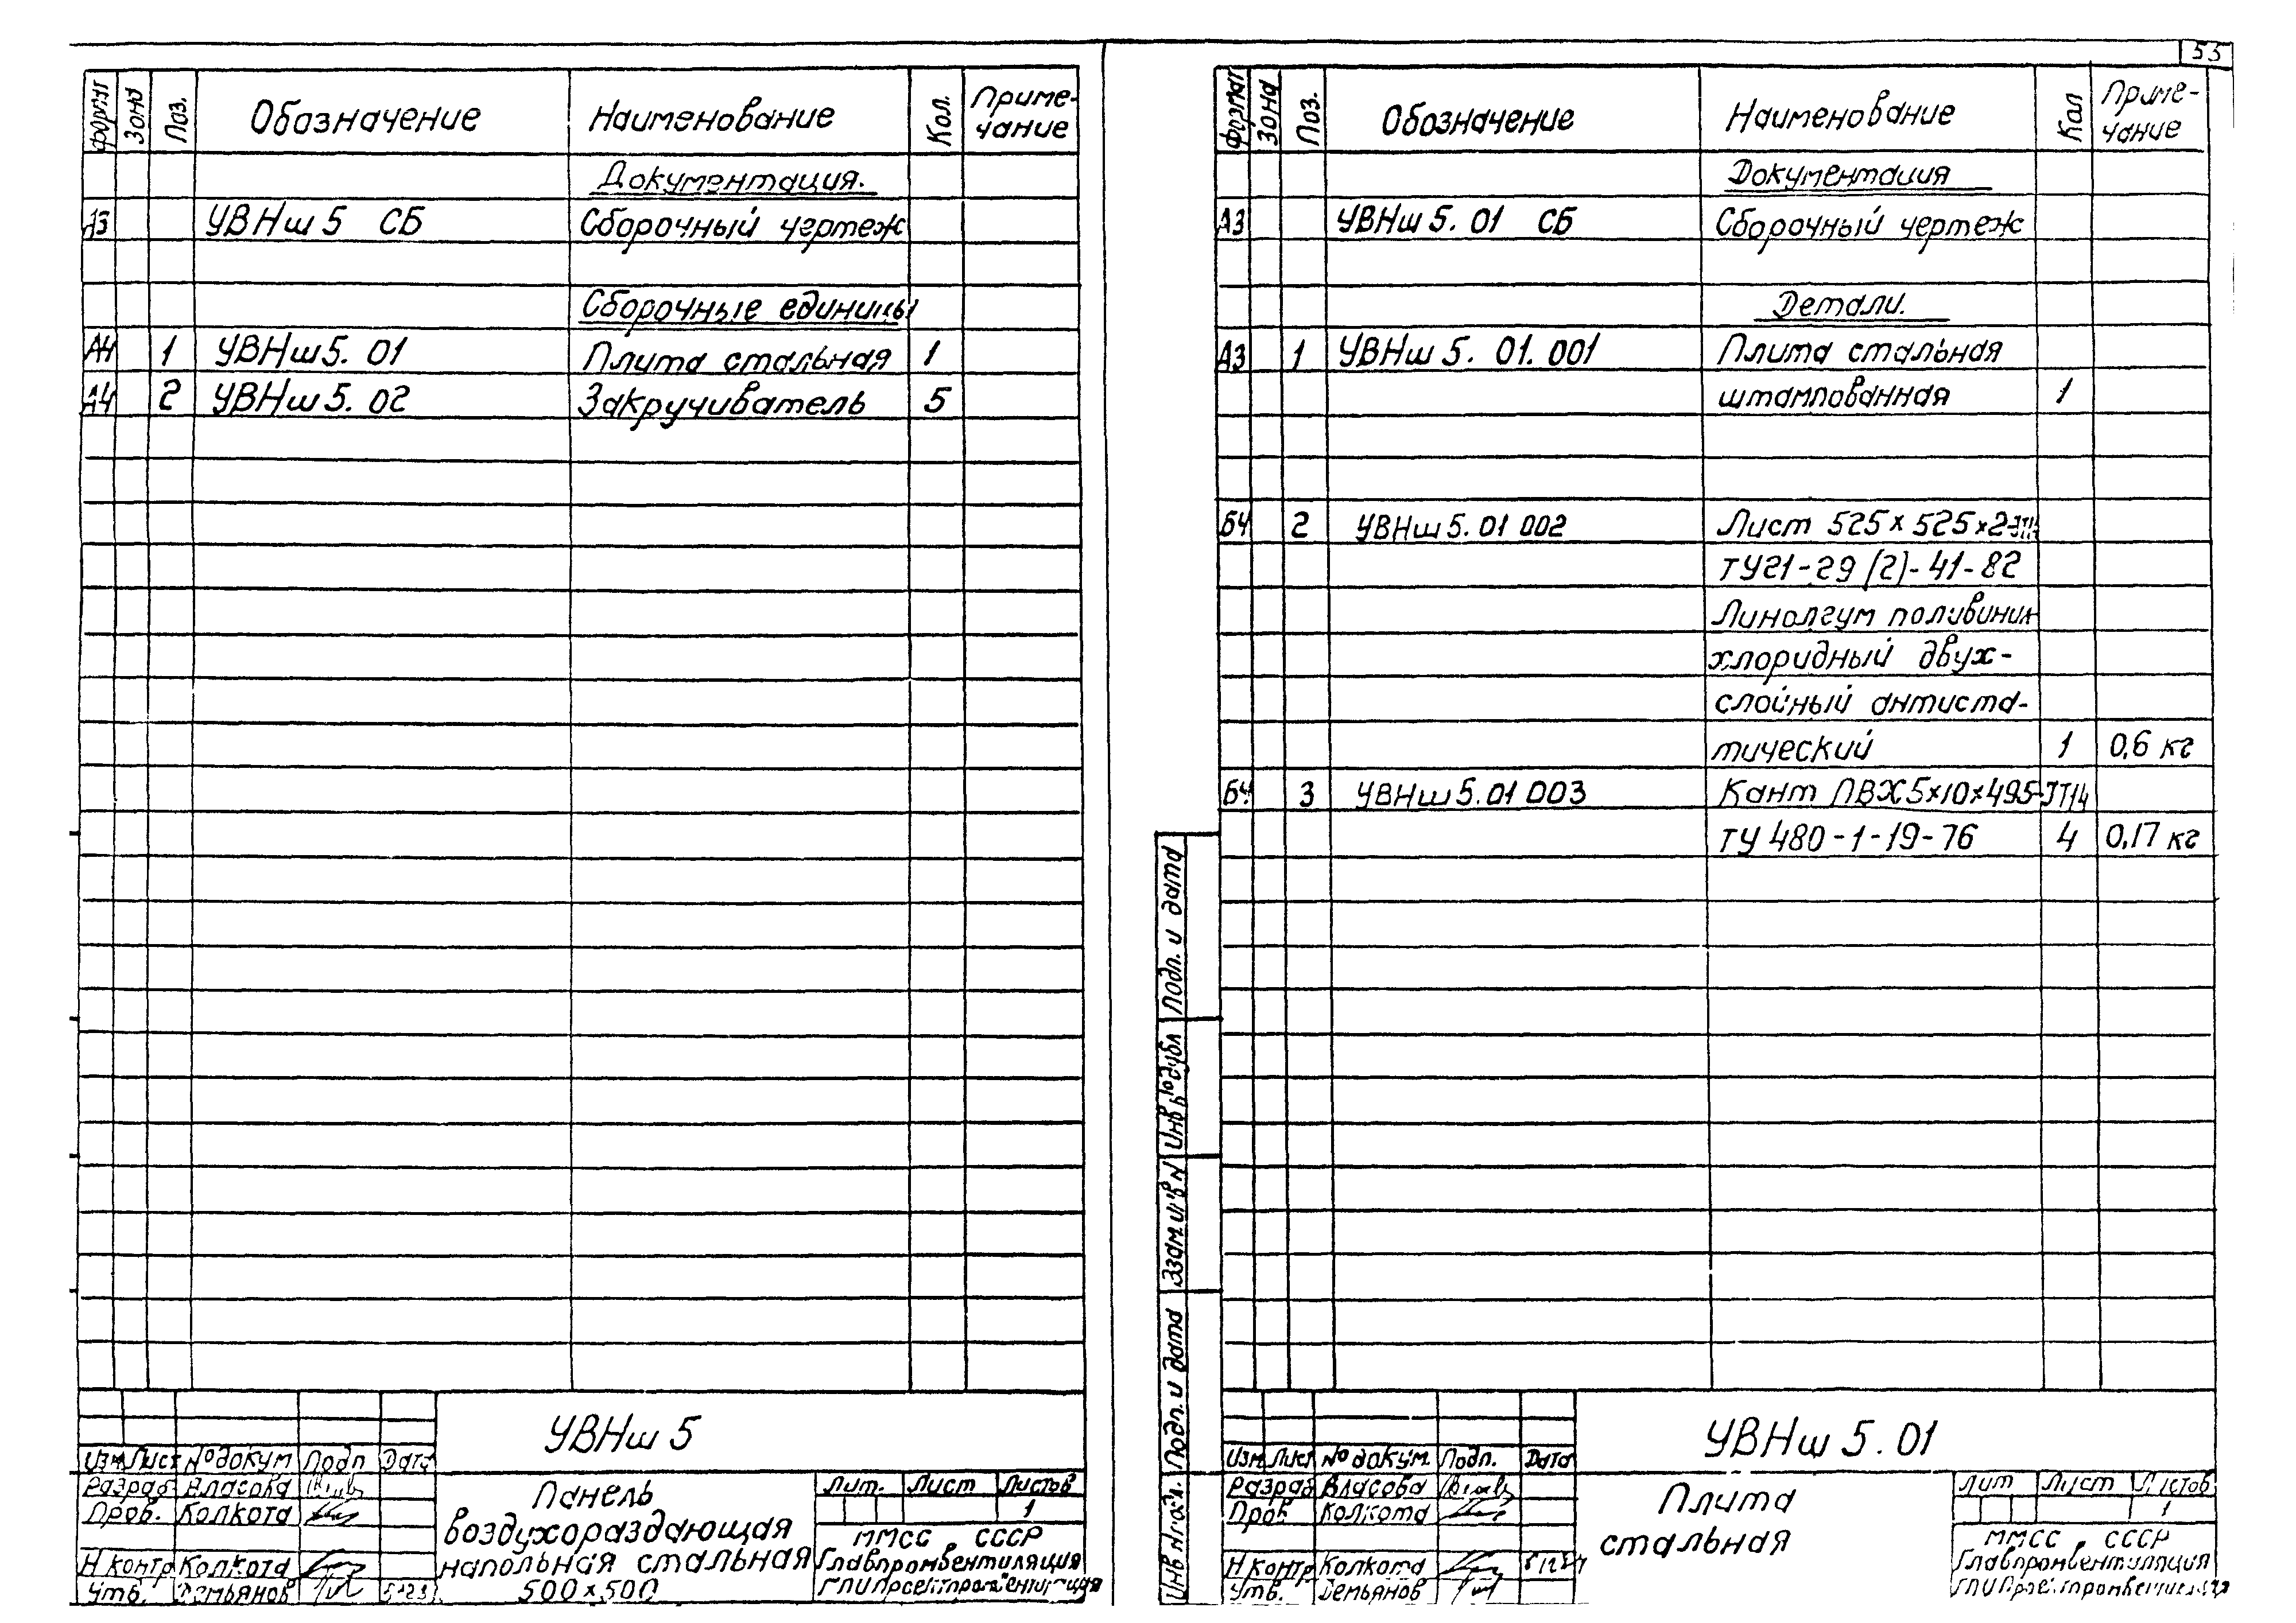 53
Формат Зона Поз. Обозначение Наименование Кол. Приме-
чание
Документация.
А3 УВНш 5 СБ Сборочный чертеж
Сборочные единицы
А4 1 УВНш 5. 01 Плита стальная 1
А4 2 УВНш 5. 02 Закручиватель 5
УВНш 5
Изм Лист № докум Подп Дата
Разраб Власова
Пров. Колкота
Н контр Колкота
Утв. Демьянов
Панель
воздухораздающая
напольная стальная
500 × 500
Лит. Лист Листов
1
ММСС СССР
Главпромвентиляция
ГПИ Проектпромвентиляция
Формат Зона Поз. Обозначение Наименование Кол Приме-
чание
Документация
А3 УВНш 5. 01 СБ Сборочный чертеж
Детали.
А3 1 УВНш 5. 01. 001 Плита стальная
штампованная 1
БЧ 2 УВНш 5. 01 002 Лист 525 × 525 × 2
ТУ21-29 (2)-41-82
Линолеум поливинил-
хлоридный двух-
слойный антиста-
тический 1 0,6 кг
БЧ 3 УВНш 5. 01 003 Кант ПВХ 5×10×495
ТУ 480-1-19-76 4 0,17 кг
Подп. и дата
Инв № дубл
Взам инв N
Подп. и дата
Инв N подл.
УВНш 5. 01
Изм Лист № докум Подп. Дата
Разраб Власова
Пров Колкота
Н контр Колкота
Утв. Демьянов
Плита
стальная
Лит Лист Листов
1
ММСС СССР
Главпромвентиляция
ГПИ Проектпромвентиляция